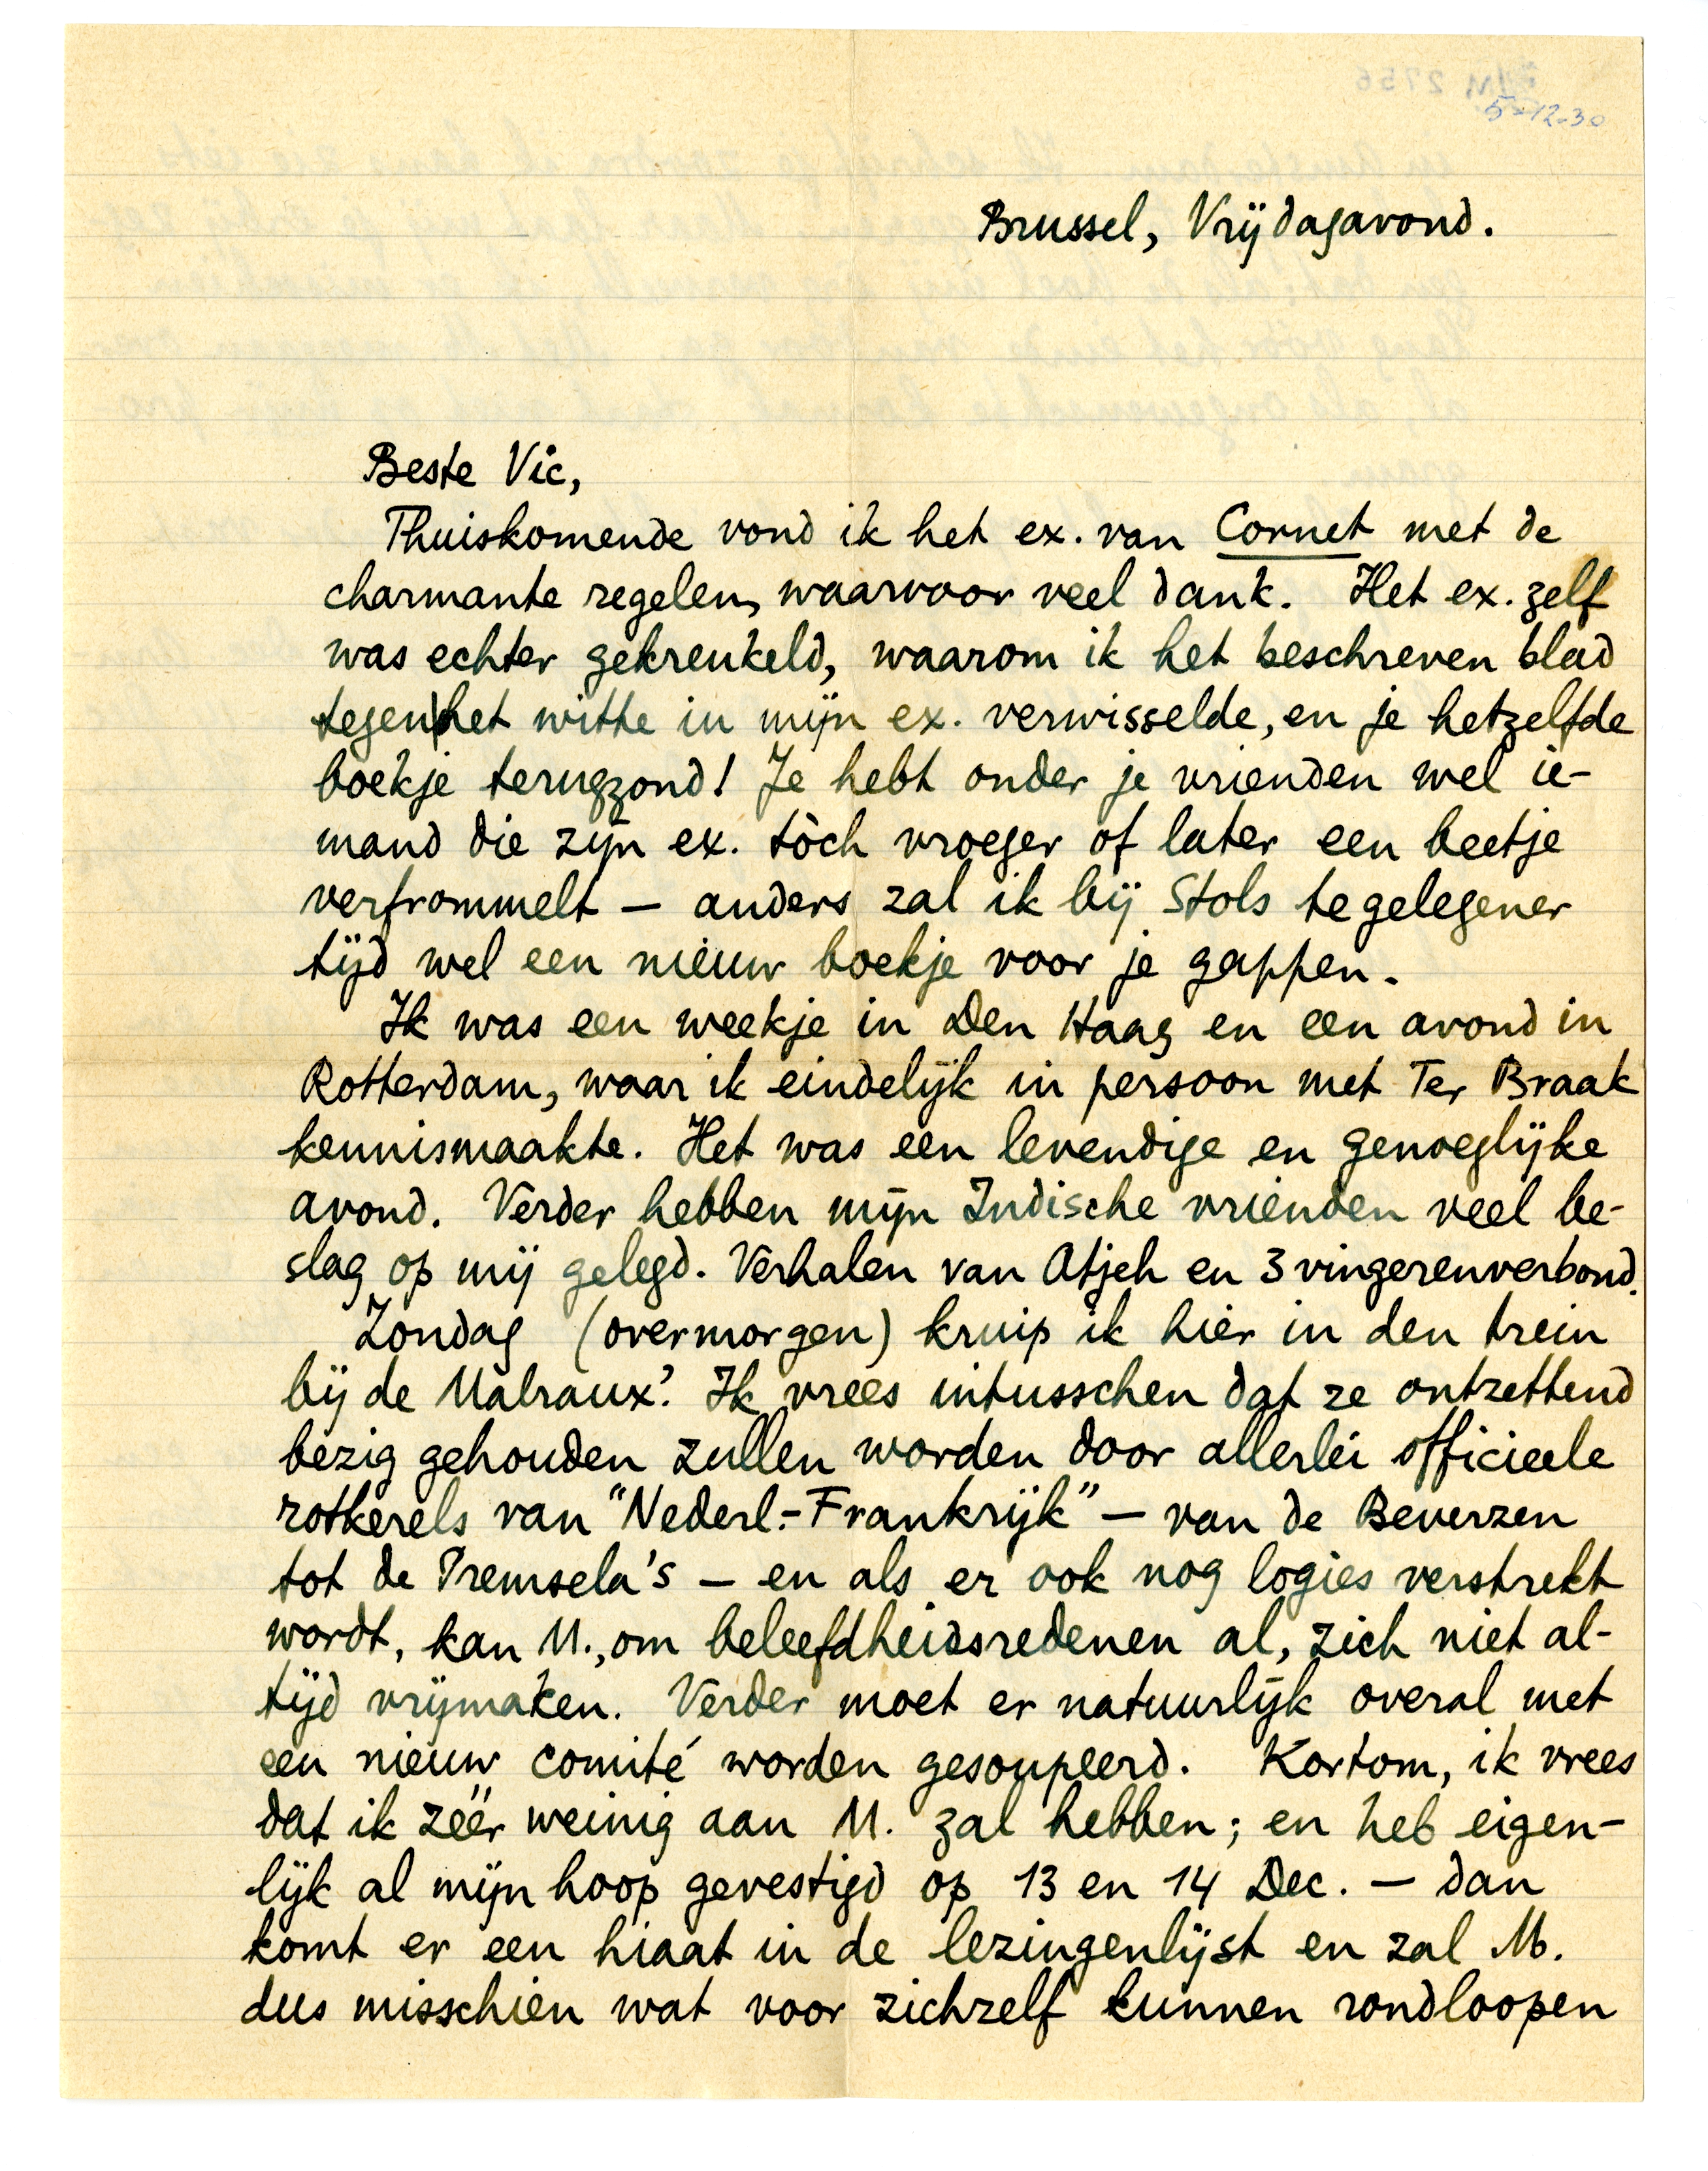 5-12-30
Brussel, Vrijdagavond.
Beste Vic,
Thuiskomende vond ik het ex. van Cornet met de
charmante regelen, waarvoor veel dank. Het ex. zelf
was echter gekreukeld, waarom ik het beschreven blad
tegen het witte in mijn ex. verwisselde, en je hetzelfde
boekje terugzond! Je hebt onder je vrienden wel ie-
mand die zijn ex. tòch vroeger of later een beetje
verfrommelt – anders zal ik bij Stols te gelegener
tijd wel een nieuw boekje voor je gappen.
Ik was een weekje in Den Haag en een avond in
Rotterdam, waar ik eindelijk in persoon met Ter Braak
kennismaakte. Het was een levendige en genoeglijke
avond. Verder hebben mijn Indische vrienden veel be-
slag op mij gelegd. Verhalen van Atjeh en 3 vingerenverbond.
Zondag (overmorgen) kruip ik hier in den trein
bij de Malraux'. Ik vrees intusschen dat ze ontzettend
bezig gehouden zullen worden door allerlei officieele
rotkerels van "Nederl.-Frankrijk" – van de Beverzen
tot de Premsela's – en als er ook nog logies verstrekt
wordt, kan M., om beleefdheidsredenen al, zich niet al-
tijd vrijmaken. Verder moet er natuurlijk overal met
een nieuw comité worden gesoupeerd. Kortom, ik vrees
dat ik zéér weinig aan M. zal hebben; en heb eigen-
lijk al mijn hoop gevestigd op 13 en 14 Dec. – dan
komt er een hiaat in de lezingenlijst en zal M.
dus misschien wat voor zichzelf kunnen rondloopen